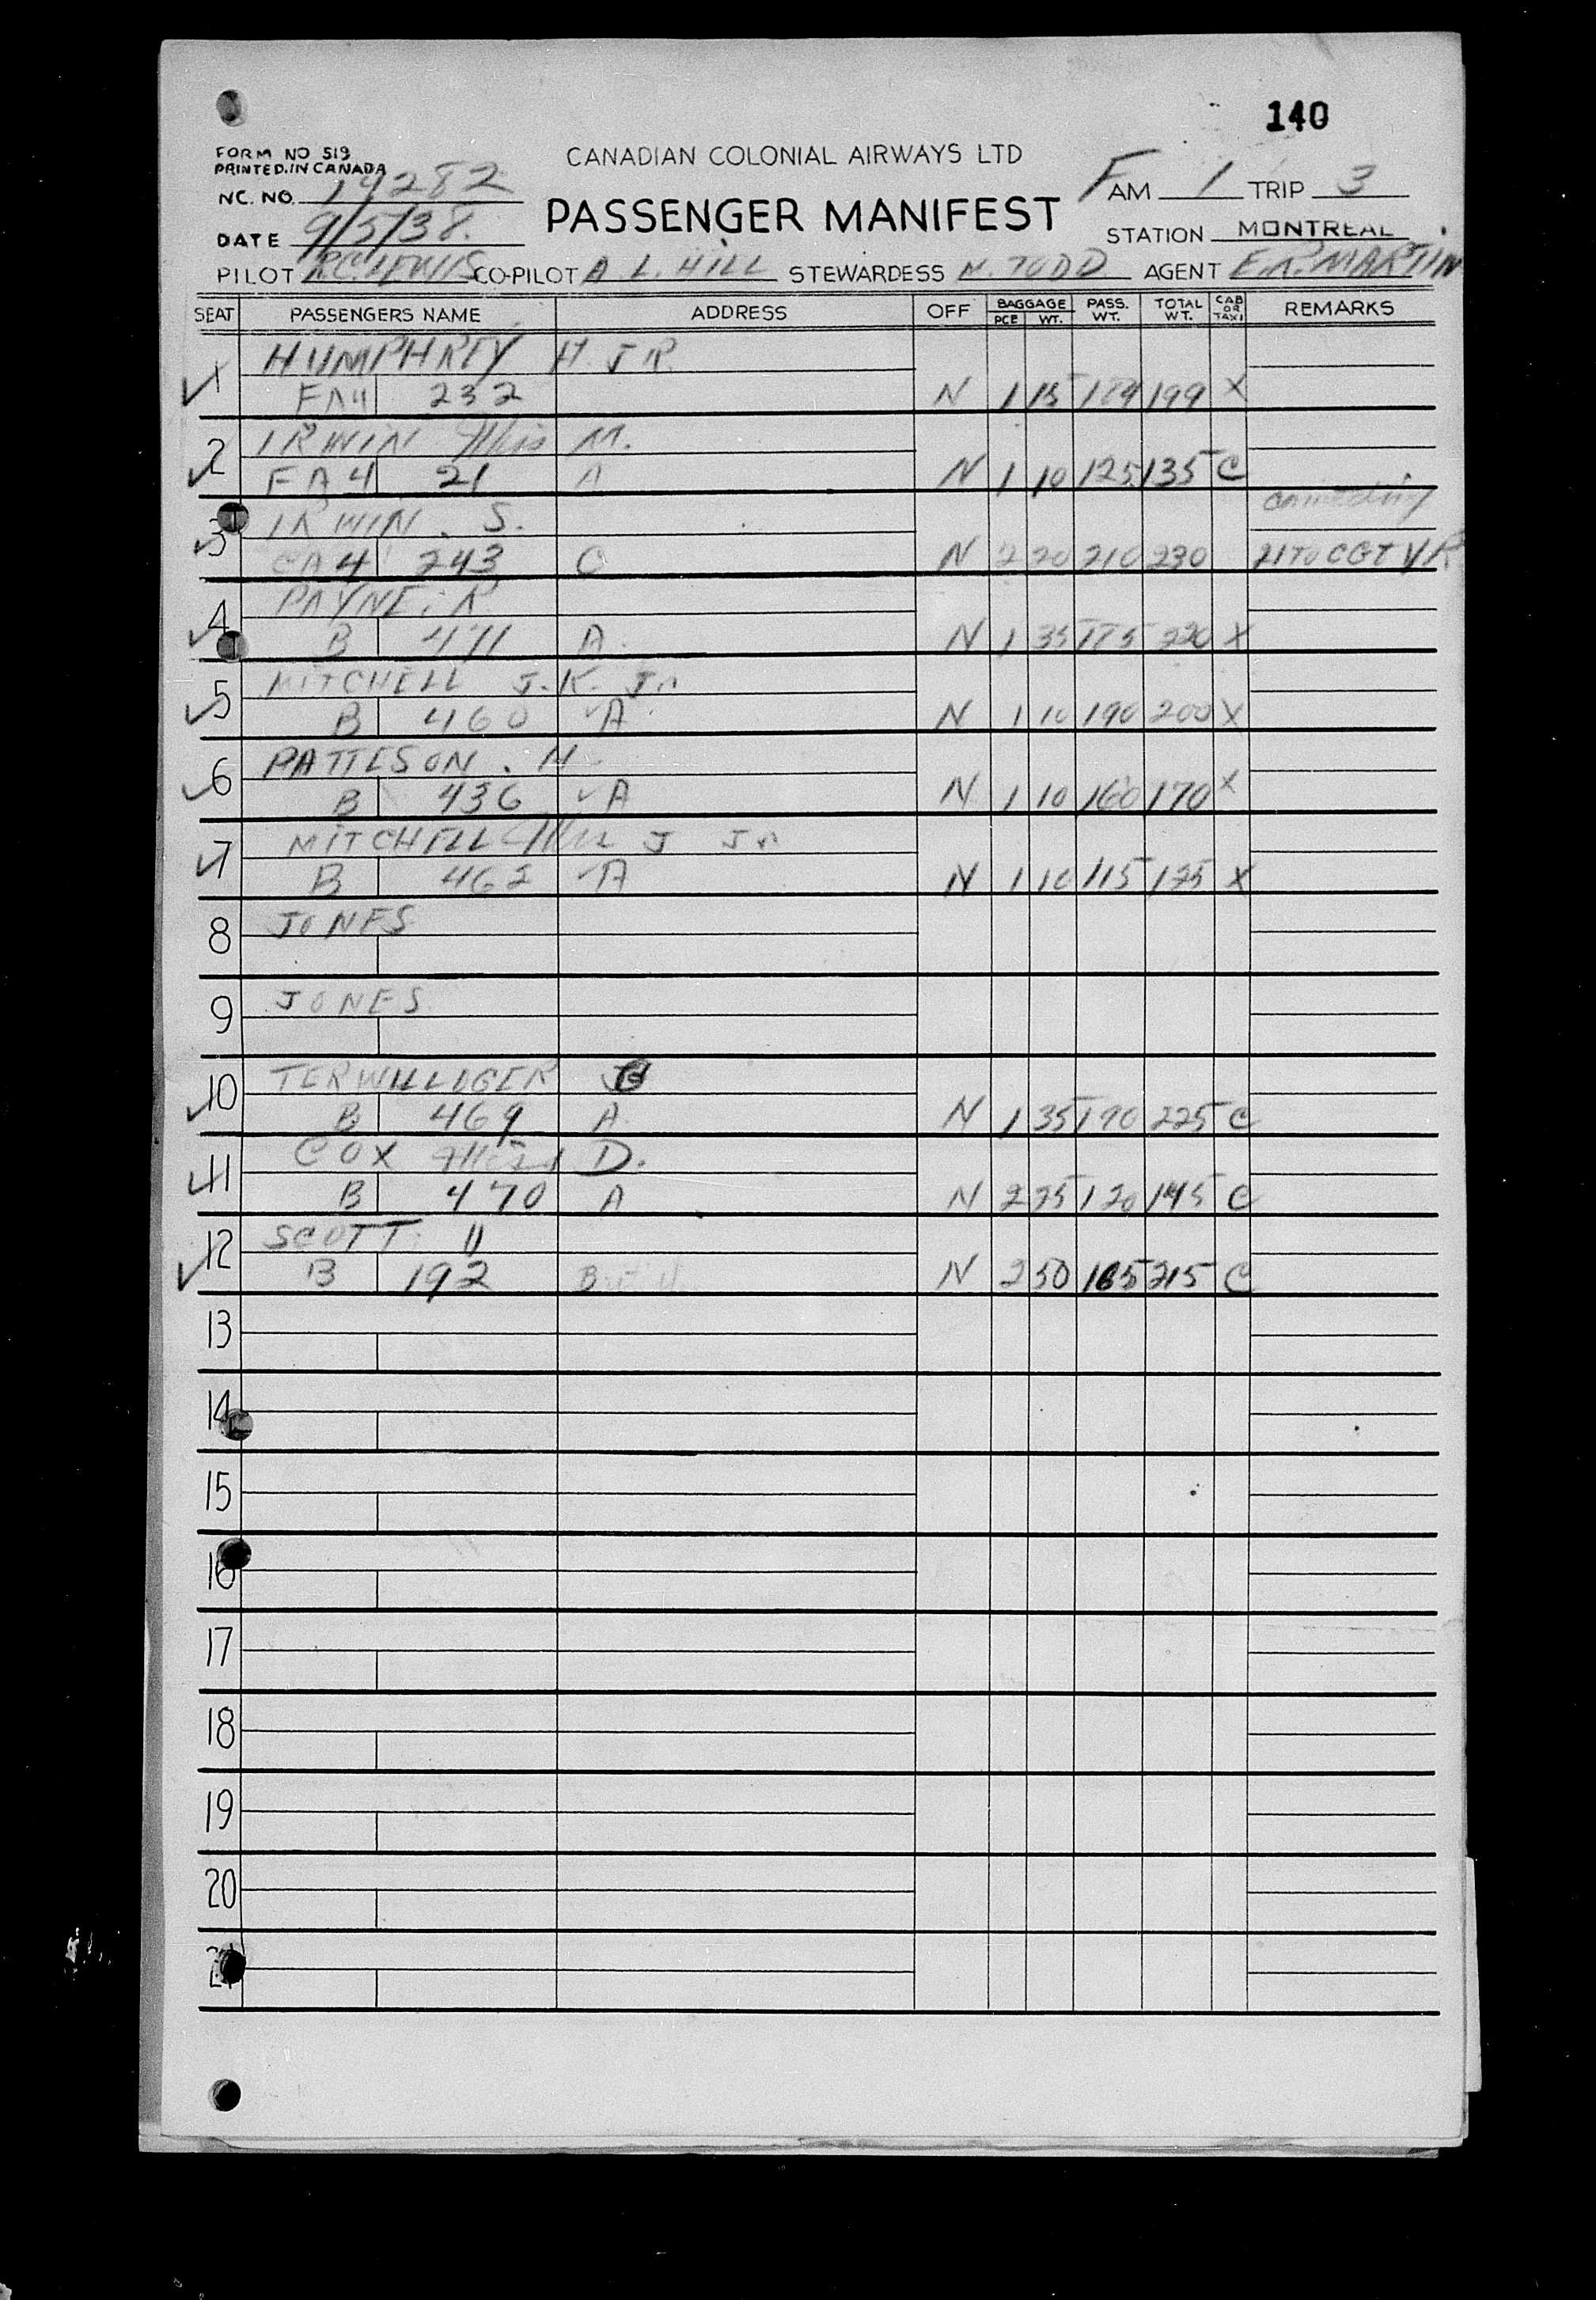 140
FORM NO 519
PRINTED.IN CANADA
CANADIAN COLONIAL AIRWAYS LTD
NC. NO. 19282
FAM 1 TRIP 3
PASSENGER MANIFEST
DATE 9/5/38.
STATION MONTREAL
PILOT R.C. LEWIS CO-PILOT A L. HILL STEWARDESS N. TODD AGENT E.R. MARTIN
SEAT PASSENGERS NAME ADDRESS OFF BAGGAGE PCE WT. PASS. WT. TOTAL WT. CAB OR TAXI REMARKS
HUMPHREY H. JR.
1 FA4 232 N 1 15 184 199 X
IRWIN Miss M.
2 FA4 21 A N 1 10 125 135 C
IRWIN. S. connecting
3 CA4 243 C N 2 20 210 230 21 TO CGT VR
PAYNE. R
4 B 471 A N 1 35 185 220 X
MITCHELL J.K. Jr
5 B 460 A N 1 10 190 200 X
PATTESON. H
6 B 436 A N 1 10 160 170 X
MITCHELL Mrs J Jr
7 B 462 A N 1 10 115 125 X
8 JONES
9 JONES
TERWILLIGER J
10 B 469 A N 1 35 190 225 C
COX D.
11 B 470 A N 2 25 120 145 C
SCOTT.
12 B 192 N 2 50 165 215 C
13
14
15
16
17
18
19
20
21